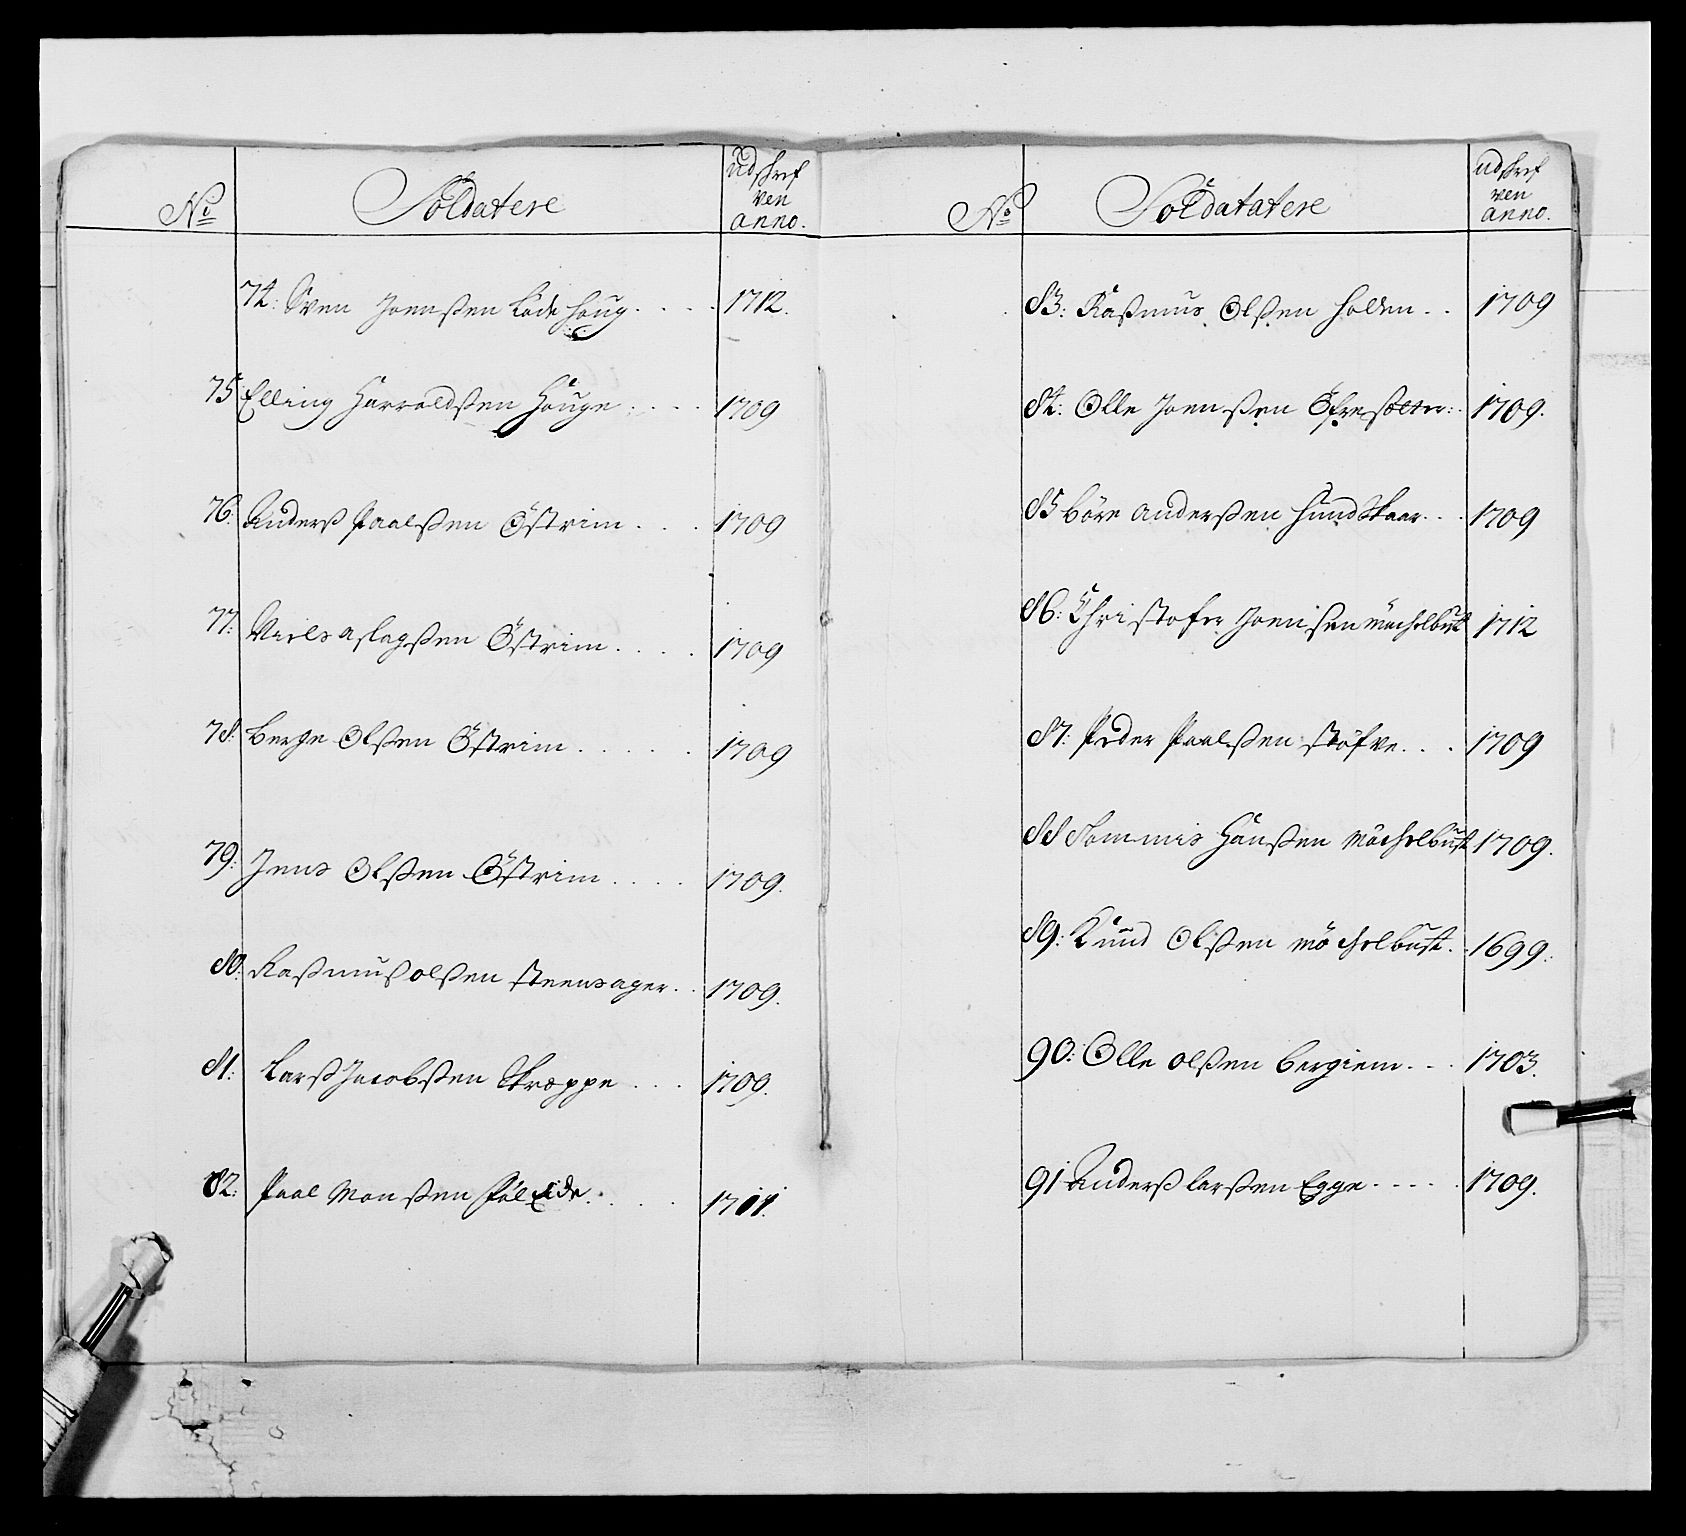 No Soldatere Udskref
ven
anno.
74: Sven Joensen Lødehoug . . . . 1712.
75 Elling Harraldsen Houge . . . . 1709
76. Anderss Paalsen Östrim . . . 1709
77: Niels aslagsen Östrim . . . . 1709
78: Berge Olsen Östrim . . . . . 1709
79: Jens Olsen Östrim . . . . 1709.
80: Rasmus olsen steensager . . 1709.
81: Larss Jacobsen Skroppe . . . 1709.
82: Paal Monsen . . . 1711.
No Soldatatere udskref
ven
anno.
83: Rasmus Olsen Holden . . 1709
84: Olle Joensen Öfresetter: . 1709.
85 Böre andersen Hundskaar . . . 1709
86: Christofer Joensen möchelbust 1712
87: Peder Paalsen støfve . . . 1709
88 Sommis Hansen Möchelbust 1709.
89: Knud Olsen möchelbust . . 1699.
90: Olle olsen bergiem . . . 1703.
91 Anderss larsen Egge . . . . . 1709.